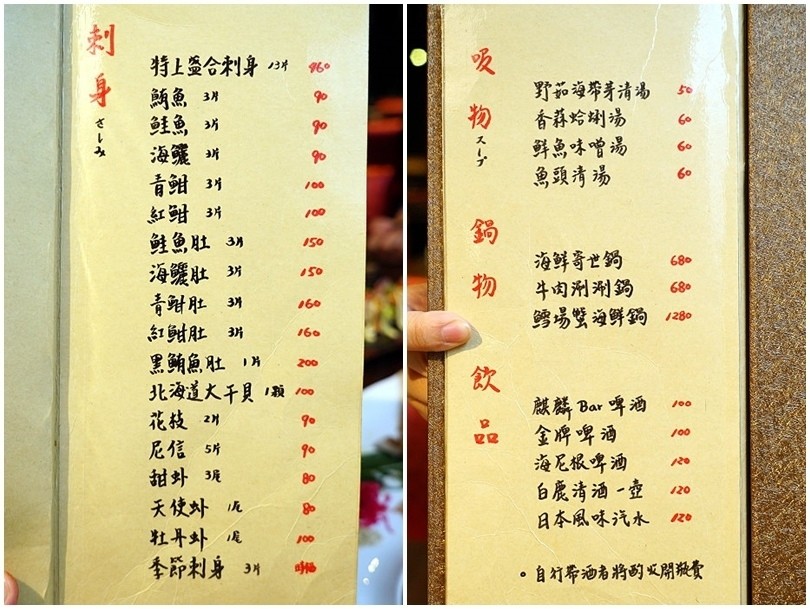 刺身
さしみ
特上盛合刺身 13片 960
鮪魚 3片 90
鮭魚 3片 90
海鱺 3片 90
青魽 3片 100
紅魽 3片 100
鮭魚肚 3片 150
海鱺肚 3片 150
青魽肚 3片 160
紅魽肚 3片 160
黑鮪魚肚 1片 200
北海道大干貝 1顆 100
花枝 2片 90
尼信 5片 90
甜虾 3尾 80
天使虾 1尾 80
牡丹虾 1尾 100
季節刺身 3片 時価
吸物
スープ
野茹海帶芽清湯 50
香蒜蛤蜊湯 60
鮮魚味噌湯 60
魚頭清湯 60
鍋物
海鮮哥世鍋 680
牛肉涮涮鍋 680
鱈場蟹海鮮鍋 1280
飲品
麒麟Bar啤酒 100
金牌啤酒 100
海尼根啤酒 120
白鹿清酒一壺 120
日本風味汽水 120
。自行帶酒者將酌收開瓶費